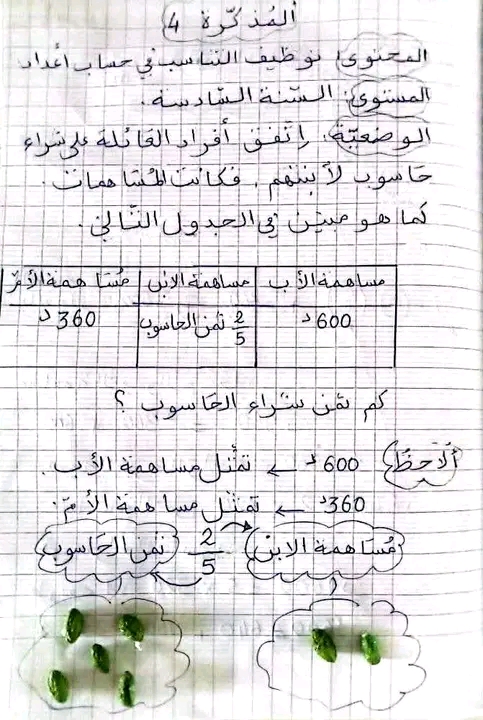 المذكّرة 4
المحتوى: توظيف التناسب في حساب أعداد
المستوى: السّنة السّادسة.
الوضعيّة: اِتّفق أفراد العائلة على شراء
حاسوب لاِبنهم، فكانت المُسَاهمات
كما هو مبيّن في الجدول التّالي.
مساهمة الأب | مساهمة الابن | مُسَاهمة الأمّ
600د | 2/5 ثمن الحاسوب | 360د
كم ثمن شراء الحَاسوب ؟
ألاحظ 600د ← تمثّل مساهمة الأب.
360د ← تمثّل مساهمة الأمّ.
مُسَاهمة الابن 2/5 ثمن الحَاسوب